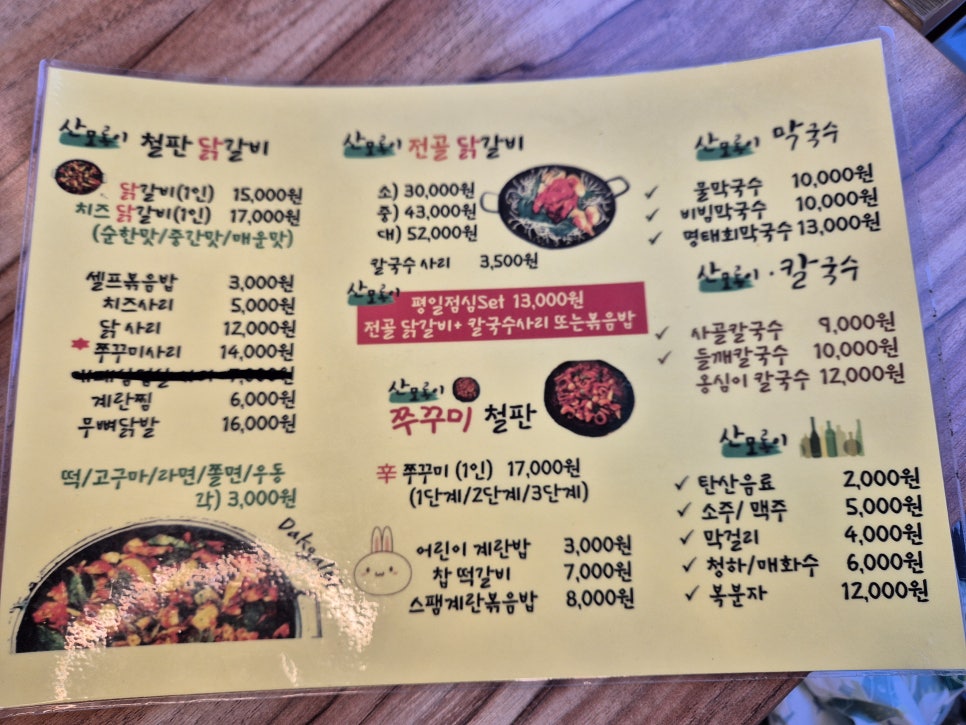 산모롱이 철판 닭갈비
닭갈비(1인) 15,000원
치즈 닭갈비(1인) 17,000원
(순한맛/중간맛/매운맛)
셀프볶음밥 3,000원
치즈사리 5,000원
닭 사리 12,000원
쭈꾸미사리 14,000원
계란찜 6,000원
무뼈닭발 16,000원
떡/고구마/라면/쫄면/우동
각) 3,000원
산모롱이 전골 닭갈비
소) 30,000원
중) 43,000원
대) 52,000원
칼국수 사리 3,500원
산모롱이 평일점심Set 13,000원
전골 닭갈비+ 칼국수사리 또는볶음밥
산모롱이
쭈꾸미 철판
辛 쭈꾸미 (1인) 17,000원
(1단계/2단계/3단계)
어린이 계란밥 3,000원
찹 떡갈비 7,000원
스팸계란볶음밥 8,000원
산모롱이 막국수
물막국수 10,000원
비빔막국수 10,000원
명태회막국수 13,000원
산모롱이 · 칼국수
사골칼국수 9,000원
들깨칼국수 10,000원
옹심이 칼국수 12,000원
산모롱이
탄산음료 2,000원
소주/ 맥주 5,000원
막걸리 4,000원
청하/매화수 6,000원
복분자 12,000원